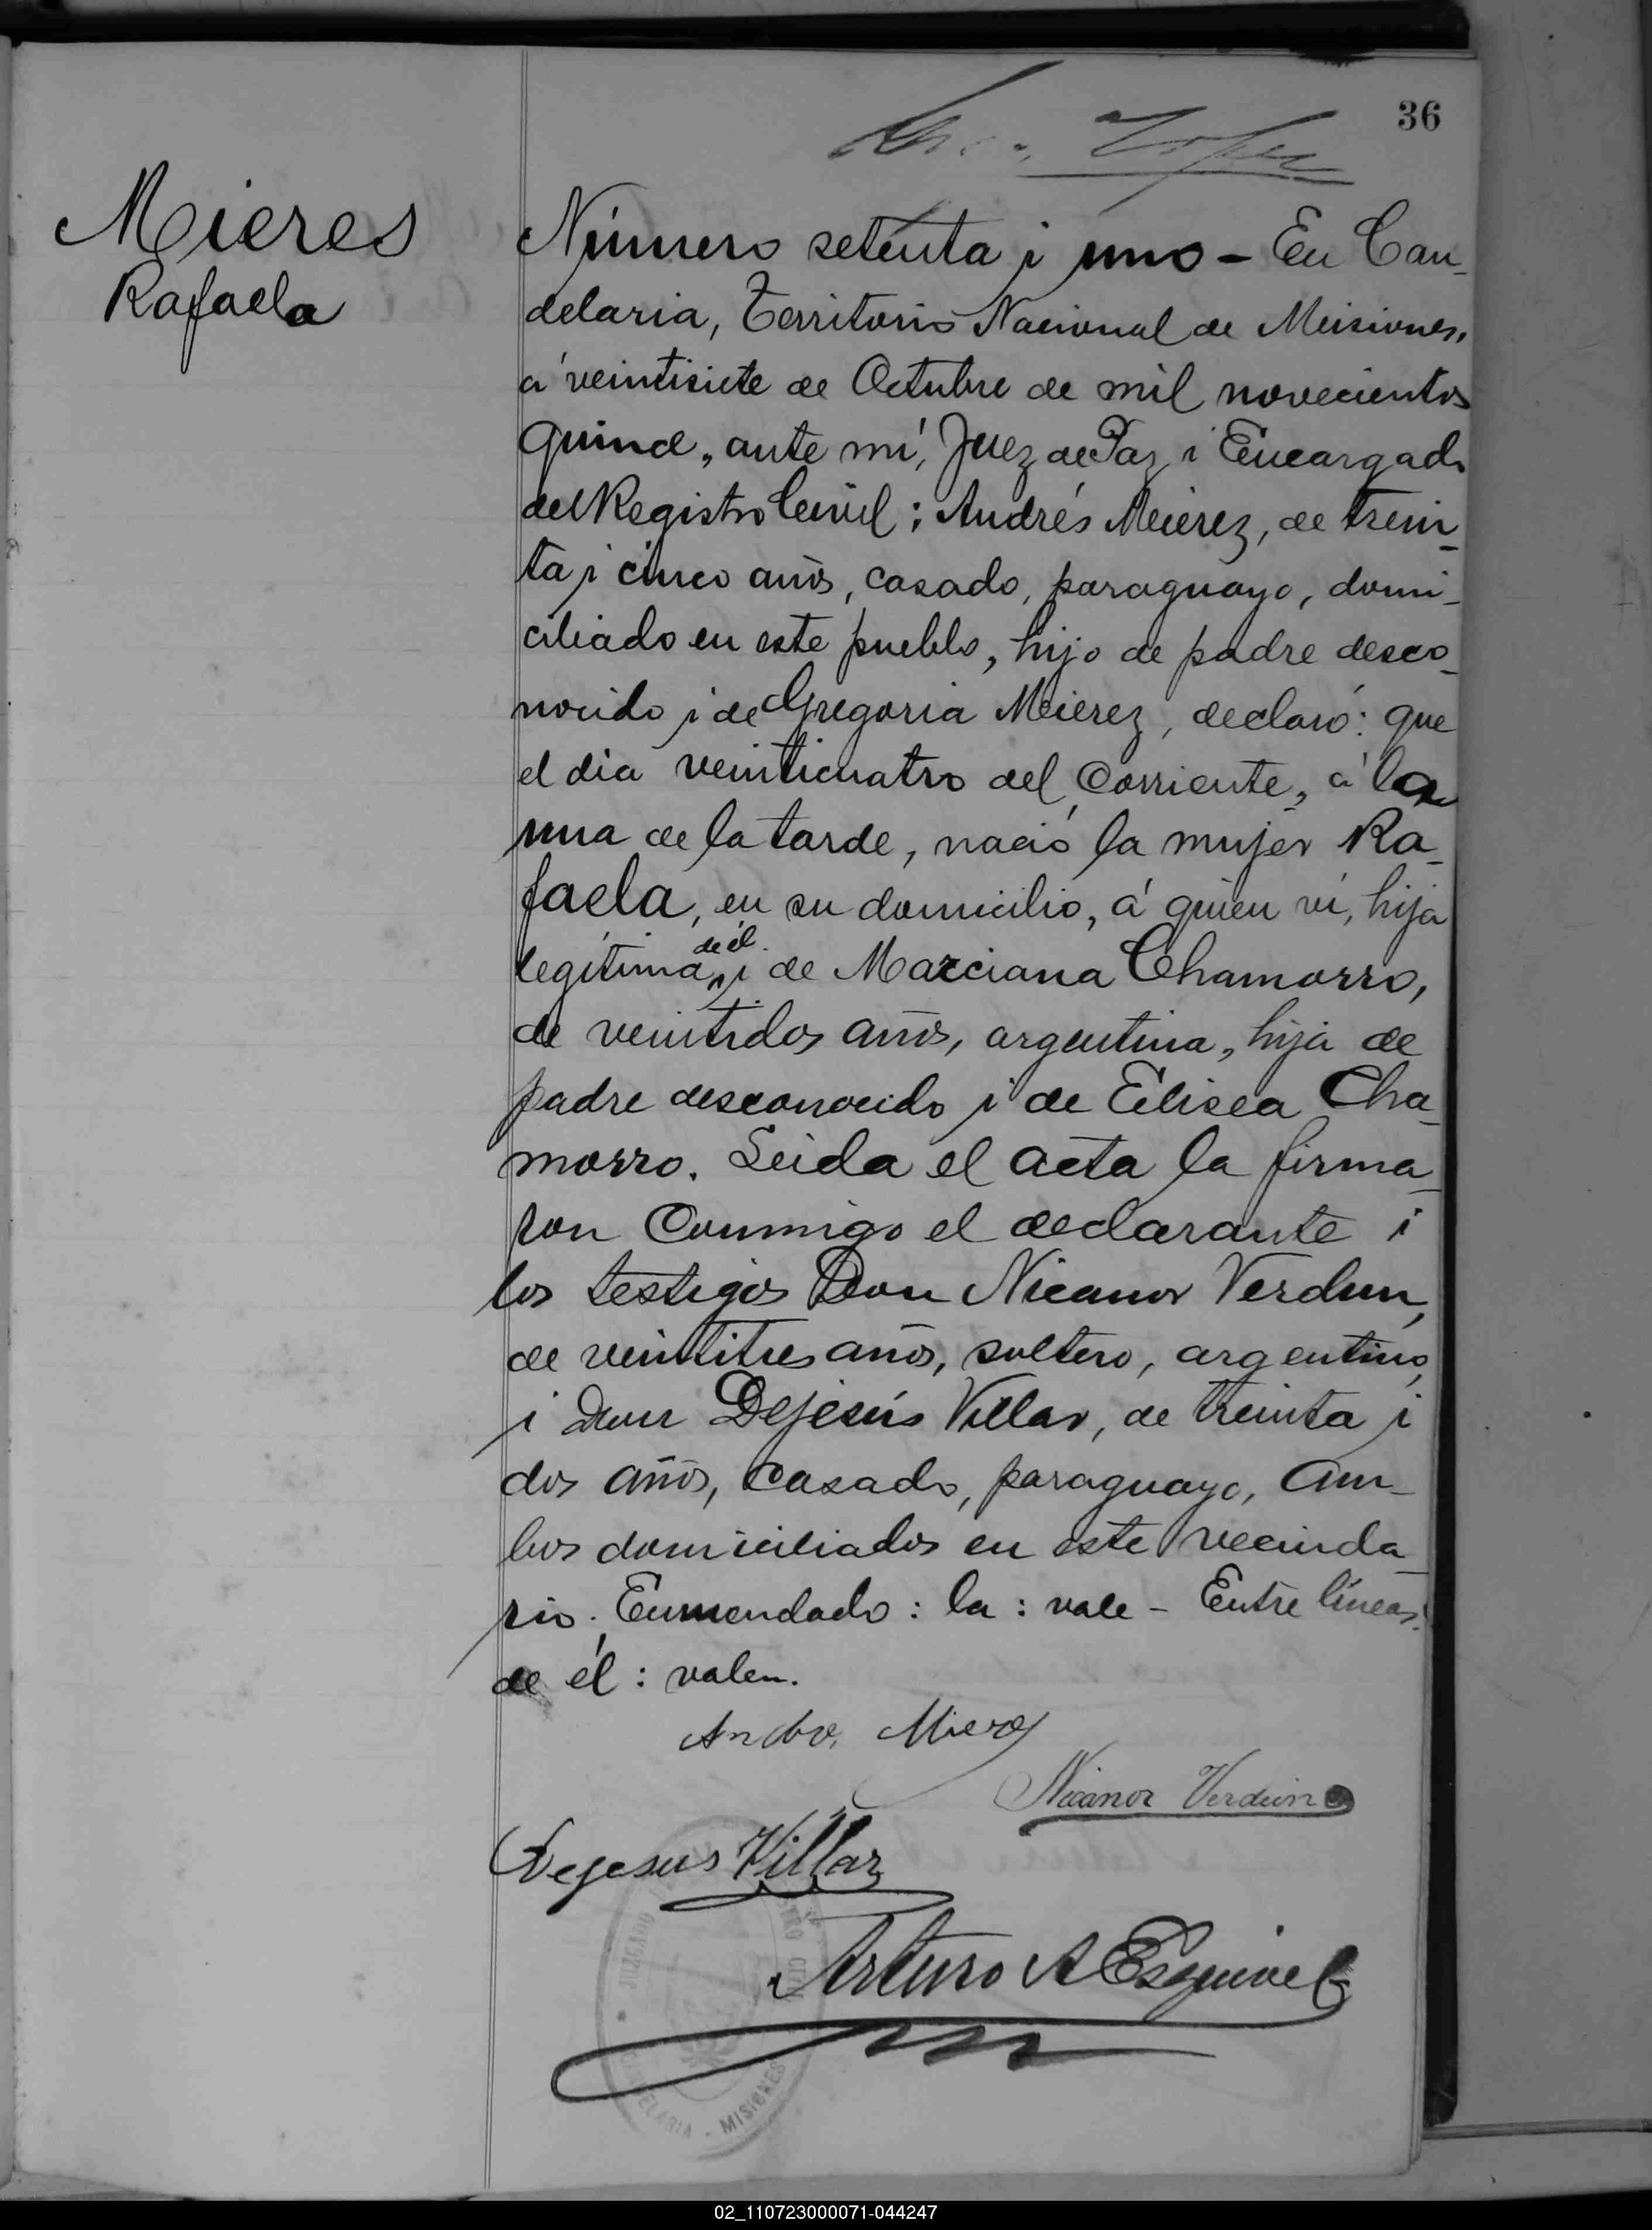 36
Mieres
Rafaela
Número setenta i uno - En Can-
delaria, Territorio Nacional de Misiones,
á veintisiete de Octubre de mil novecientos
quince, ante mí, Juez de Paz i Encargado
del Registro Civil; Andrés Mierez, de trein-
ta i cinco años, casado, paraguayo, domi-
ciliado en este pueblo, hijo de padre desco-
nocido i de Gregoria Mierez, declaró: que
el dia veinticuatro del corriente, á la
una de la tarde, nació la mujer Ra-
faela, en su domicilio, á quien ví, hija
de él
legítima, i de Marciana Chamorro,
de veintidos años, argentina, hija de
padre desconocido i de Elisea Cha-
morro. Leida el acta la firma-
ron conmigo el declarante i
los testigos Don Nicanor Verdun,
de veintitres años, soltero, argentino,
i Don Dejesús Villar, de treinta i
dos años, casado, paraguayo, am-
bos domiciliados en este vecinda-
rio. Enmendado: la: vale - Entre líneas:
de él: valen.
Mierez
Nicanor Verdun
Dejesus Villar
Arturo A Esquivel
JUZGADO
MISIONES
02_110723000071-044247